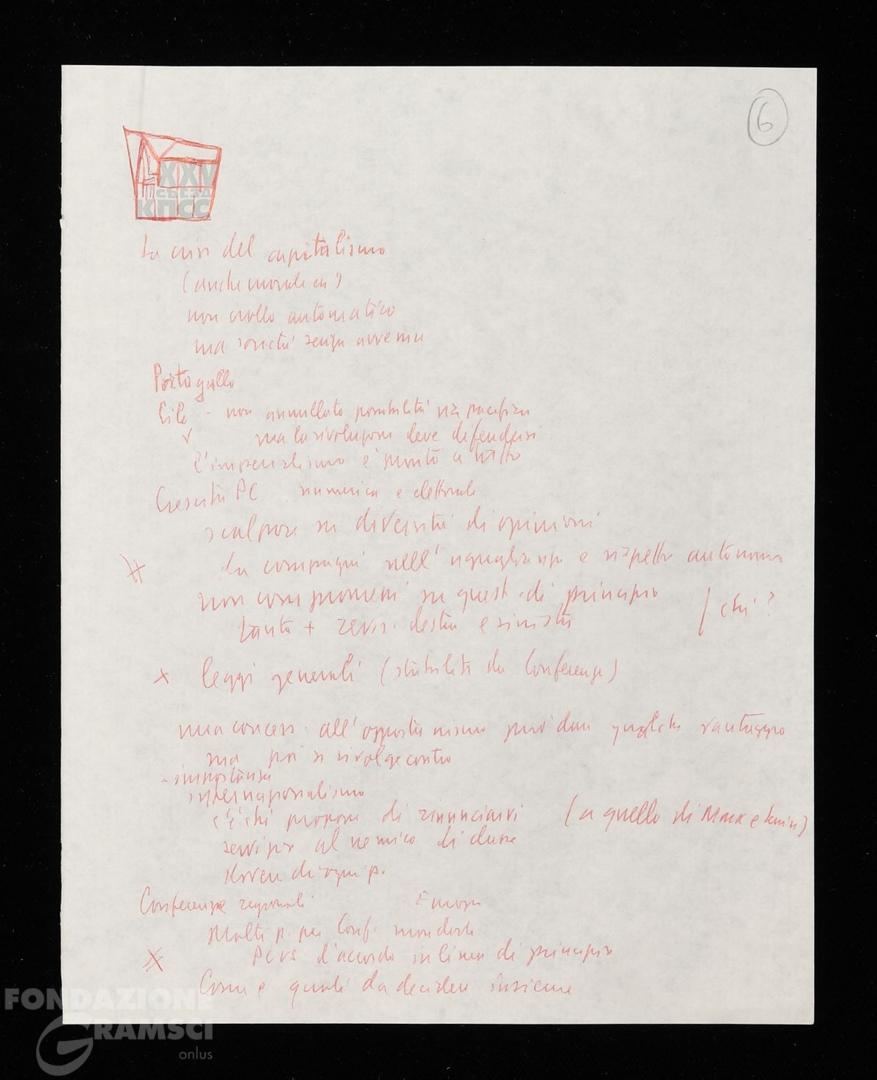 6
XXV
СЪЕЗД
КПСС
La crisi del capitalismo
(anche morale ecc)
non crollo automatico
ma società senza avvenire
Portogallo
Cile - non annullata possibilità via pacifica
ma la rivoluzione deve difendersi
L'imperialismo è pronto a tutto
Crescita PC numerica e elettorale
scalpore su diversità di opinioni
tra compagni nell'uguaglianza e rispetto autonomia
non compromessi su quest. di principio / chi?
tanto + revis. destra e sinistra
x leggi generali (stabilite da Conferenze)
una concess. all'opportunismo può dare qualche vantaggio
ma poi si rivolge contro
- importanza
internazionalismo
c'è chi propone di rinunciarvi (a quello di Marx e Lenin)
servizio al nemico di classe
dovere di ogni p.
Conferenze regionali Europa
Molti p. per Conf. mondiale
PCUS d'accordo in linea di principio
Come e quando da decidere insieme
FONDAZIONE
GRAMSCI
onlus